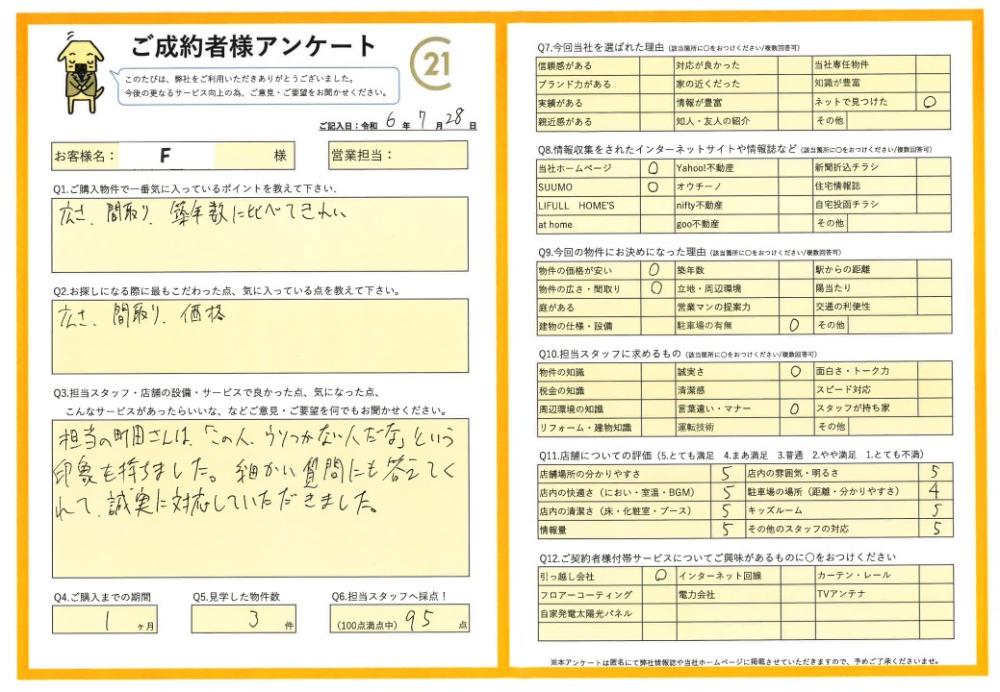 ご成約者様アンケート
21
このたびは、弊社をご利用いただきありがとうございました。
今後の更なるサービス向上の為、ご意見・ご要望をお聞かせください。
ご記入日:令和 6 年 7 月 28 日
お客様名: F 様
営業担当:
Q1.ご購入物件で一番気に入っているポイントを教えて下さい。
広さ、間取り、築年数に比べてきれい
Q2.お探しになる際に最もこだわった点、気に入っている点を教えて下さい。
広さ、間取り、価格
Q3.担当スタッフ・店舗の設備・サービスで良かった点、気になった点、
こんなサービスがあったらいいな、などご意見・ご要望を何でもお聞かせください。
担当の町田さんは、「この人、ウソつかない人だな」という
印象を持ちました。細かい質問にも答えてく
れて、誠実に対応していただきました。
Q4.ご購入までの期間
1 ヶ月
Q5.見学した物件数
3 件
Q6.担当スタッフへ採点!
(100点満点中) 95 点
Q7.今回当社を選ばれた理由 (該当箇所に○をおつけください/複数回答可)
信頼感がある 対応が良かった 当社専任物件
ブランド力がある 家の近くだった 知識が豊富
実績がある 情報が豊富 ネットで見つけた ○
親近感がある 知人・友人の紹介 その他
Q8.情報収集をされたインターネットサイトや情報誌など (該当箇所に○をおつけください/複数回答可)
当社ホームページ ○ Yahoo!不動産 新聞折込チラシ
SUUMO ○ オウチーノ 住宅情報誌
LIFULL HOME'S nifty不動産 自宅投函チラシ
at home goo不動産 その他
Q9.今回の物件にお決めになった理由 (該当箇所に○をおつけください/複数回答可)
物件の価格が安い ○ 築年数 駅からの距離
物件の広さ・間取り ○ 立地・周辺環境 陽当たり
庭がある 営業マンの提案力 交通の利便性
建物の仕様・設備 駐車場の有無 ○ その他
Q10.担当スタッフに求めるもの (該当箇所に○をおつけください/複数回答可)
物件の知識 誠実さ ○ 面白さ・トーク力
税金の知識 清潔感 スピード対応
周辺環境の知識 言葉遣い・マナー ○ スタッフが持ち家
リフォーム・建物知識 運転技術 その他
Q11.店舗についての評価 (5.とても満足 4.まあ満足 3.普通 2.やや満足 1.とても不満)
店舗場所の分かりやすさ 5 店内の雰囲気・明るさ 5
店内の快適さ(におい・室温・BGM) 5 駐車場の場所(距離・分かりやすさ) 4
店内の清潔さ(床・化粧室・ブース) 5 キッズルーム 5
情報量 5 その他のスタッフの対応 5
Q12.ご契約者様付帯サービスについてご興味があるものに○をおつけください
引っ越し会社 ○ インターネット回線 カーテン・レール
フロアーコーティング 電力会社 TVアンテナ
自家発電太陽光パネル
※本アンケートは匿名にて弊社情報誌や当社ホームページに掲載させていただきますので、予めご了承くださいませ。